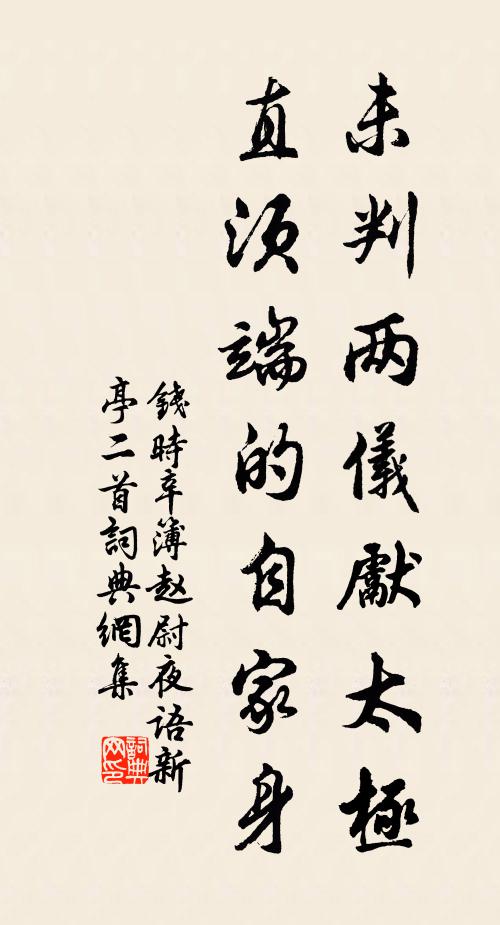 未判两儀獻太極
直須端的自家身
錢時辛簿赵尉夜语新
亭二首詞典網集
詞典
网